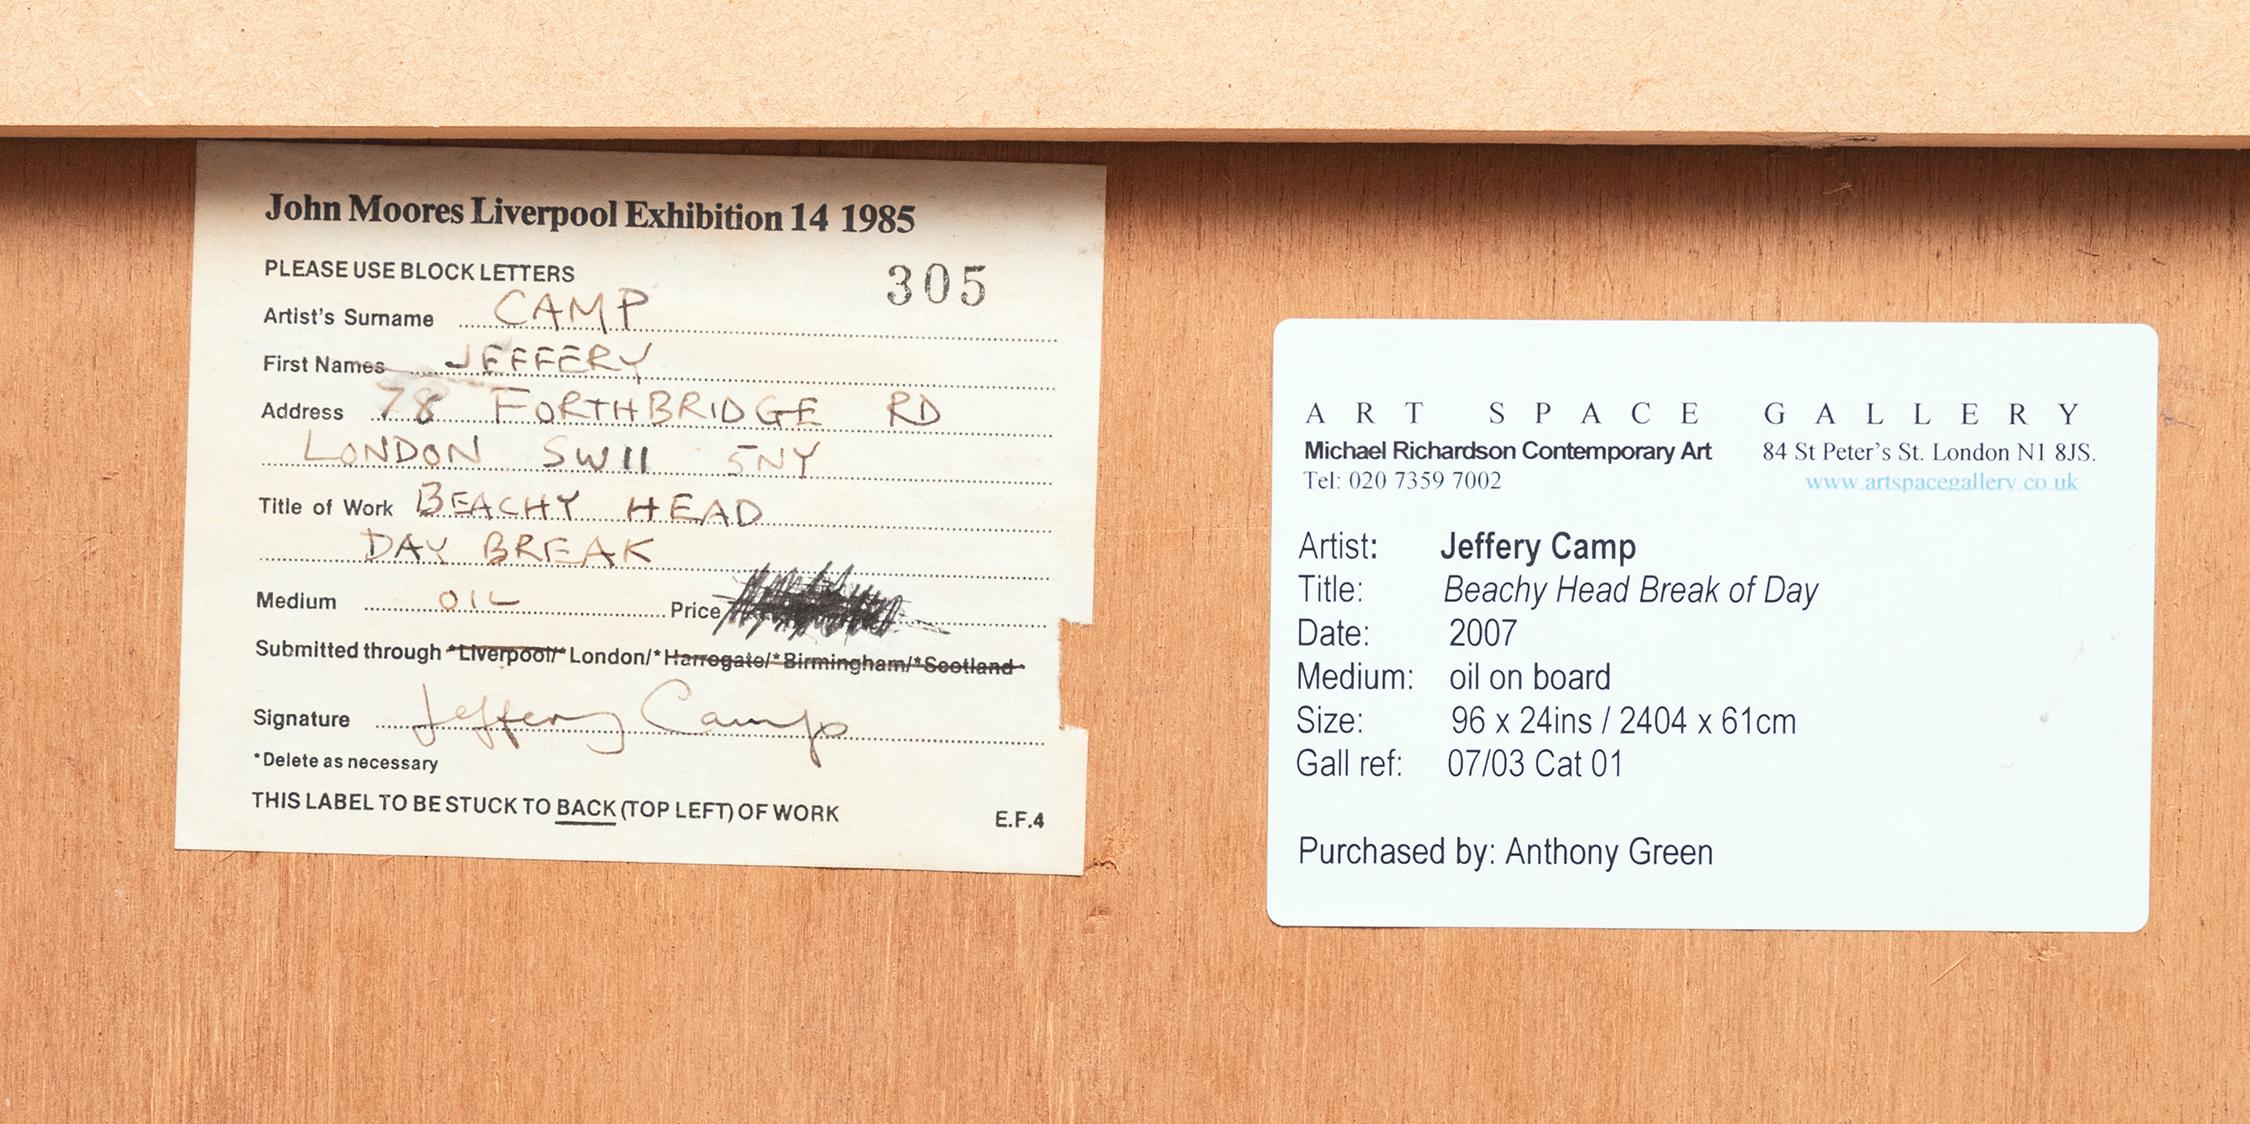 John Moores Liverpool Exhibition 14 1985
PLEASE USE BLOCK LETTERS
305
Artist's Surname CAMP
First Names JEFFERY
Address 78 FORTHBRIDGE RD
LONDON SW11 5NY
Title of Work BEACHY HEAD
DAY BREAK
Medium OIL Price
Submitted through *Liverpool/*London/*Harrogate/*Birmingham/*Scotland
Signature Jeffery Camp
*Delete as necessary
THIS LABEL TO BE STUCK TO BACK (TOP LEFT) OF WORK E.F.4
ART SPACE GALLERY
Michael Richardson Contemporary Art 84 St Peter's St. London N1 8JS.
Tel: 020 7359 7002 www.artspacegallery.co.uk
Artist: Jeffery Camp
Title: Beachy Head Break of Day
Date: 2007
Medium: oil on board
Size: 96 x 24ins / 2404 x 61cm
Gall ref: 07/03 Cat 01
Purchased by: Anthony Green